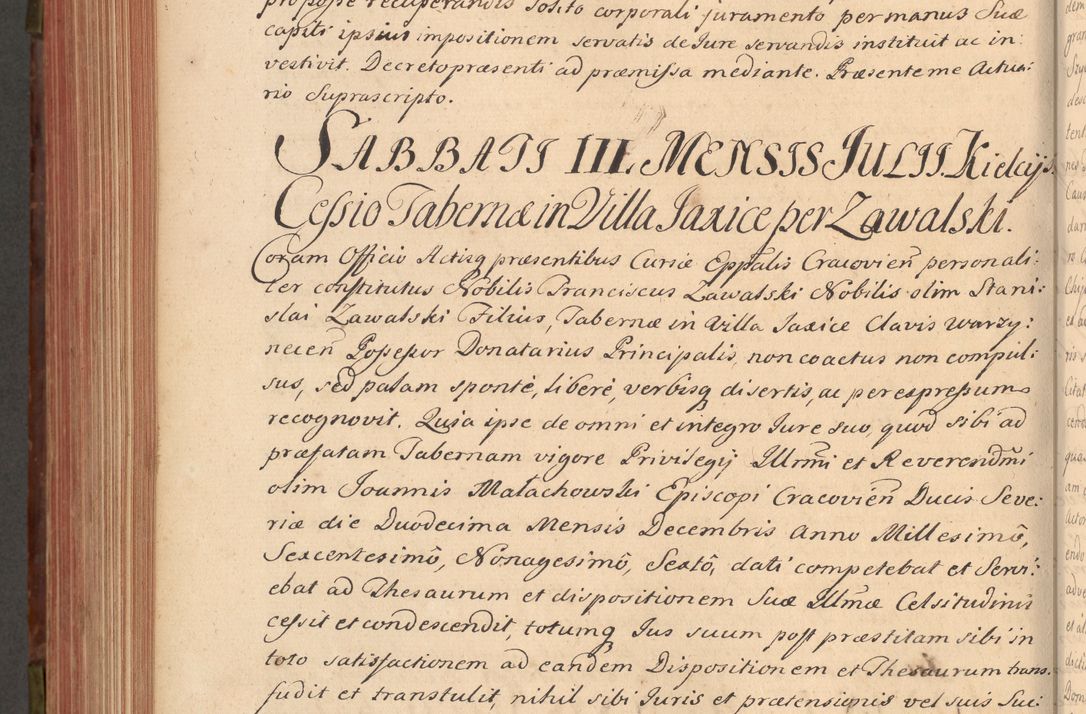 propope recuperandis solito corporali juramento per manus suæ
capiti ipsius impositionem servatis de Jure servandis instituit ac in:
vestivit. Decreto præsenti ad præmissa mediante. Præsente me Actua:
rio Suprascripto.
SABBATI III. MENSIS JULII. Kielcijs.
Cessio Tabernæ in Villa Jaxice per Zawalski.
Coram Officio Actisq præsentibus Curiæ Eppalis Cracovien personali:
ter constitutus Nobilis Franciscus Zawalski Nobilis olim Stani:
slai Zawalski Filius, Tabernæ in Villa Jaxice Clavis Warzy:
necen Possessor Donatarius Principalis, non coactus non compul:
sus, sed palam sponté, liberé, verbisq disertis, ac per expressum
recognovit. Quia ipse de omni et integro Jure suo, quod sibi ad
præfatam Tabernam vigore Privilegij Illrmi et Reverendmi
olim Joannis Małachowski Episcopi Cracovien Ducis Seve:
riæ die Duodecima Mensis Decembris Anno Millesimô,
Sexcentesimô, Nonagesimô, Sextô, dati competebat et Servi:
ebat ad Thesaurum et dispositionem Suæ Illmæ Celsitudinis
cessit et condescendit, totumq Jus suum post præstitam sibi in
toto satisfactionem ad eandem Dispositionem et Thesaurum trans:
fudit et transtulit, nihil sibi Juris et prætensionis vel suis Suc: